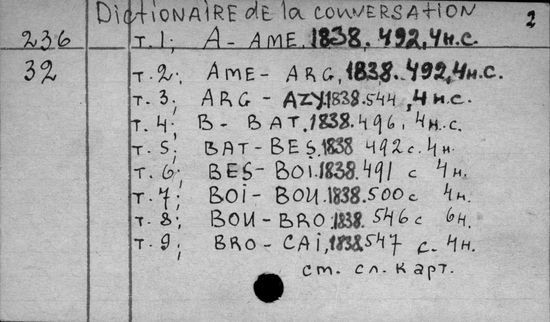 Dictionaire de la conversation
2
236 т.1; A - AME. 1838. 492, 4 н.с.
32 т.2; AME - ARG, 1838. 492, 4 н.с.
т.3; ARG - AZY. 1838. 544, 4 н.с.
т.4; B - BAT. 1838. 496, 4 н.с.
т.5; BAT - BES. 1838 492 с. 4 н.
т.6; BES - BOI. 1838. 491 с 4 н.
т.7; BOI - BOU. 1838. 500 с 4 н.
т.8; BOU - BRO. 1838. 546 с 6 н.
т.9; BRO - CAI, 1838. 547 с. 4 н.
ст. сл. карт.